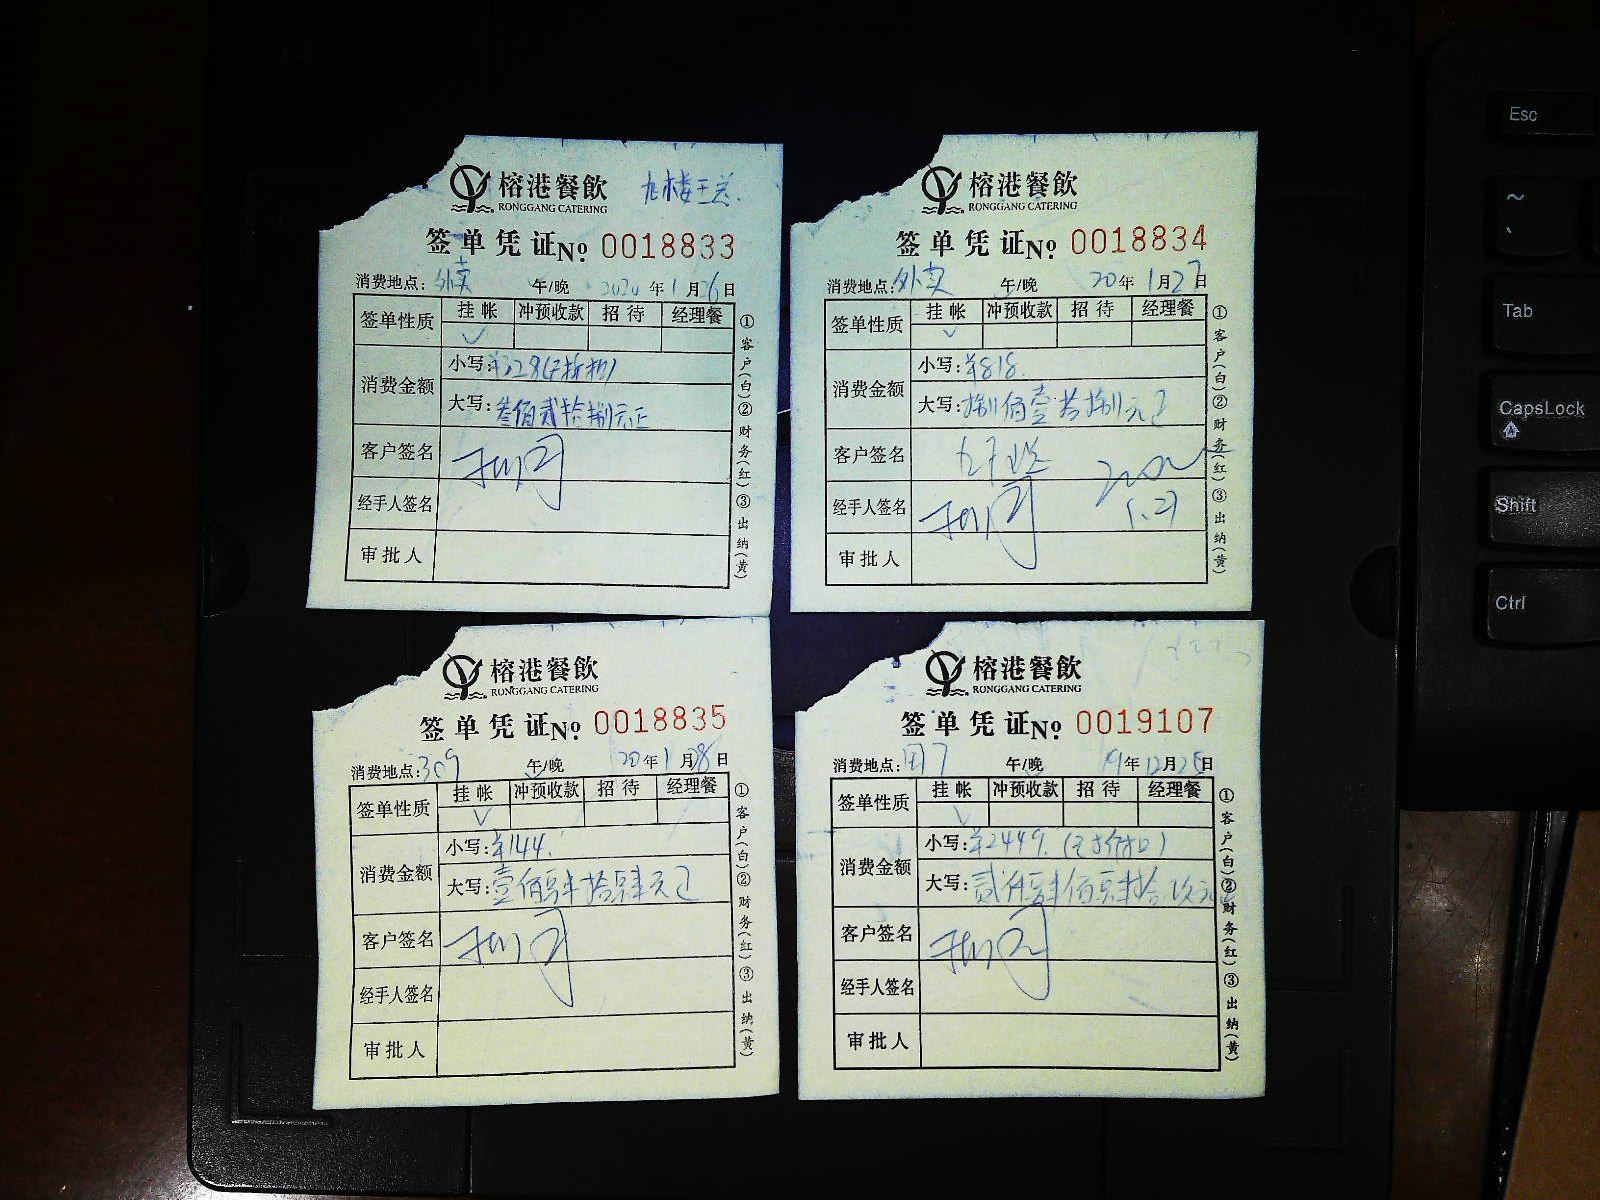 榕港餐飲
九楼王总.
RONGGANG CATERING
签单凭证No 0018833
消费地点: 外卖 午/晚 2020年1月26日
签单性质 挂帐 冲预收款 招待 经理餐
✓
消费金额
小写:¥328(不折扣)
大写:叁佰贰拾捌元正
客户签名
经手人签名
审批人
①客户(白)②财务(红)③出纳(黄)
榕港餐飲
RONGGANG CATERING
签单凭证No 0018834
消费地点: 外卖 午/晚 20年1月27日
签单性质 挂帐 冲预收款 招待 经理餐
✓
消费金额
小写:¥818.
大写:捌佰壹拾捌元正
客户签名
经手人签名
1.27
审批人
①客户(白)②财务(红)③出纳(黄)
榕港餐飲
RONGGANG CATERING
签单凭证No 0018835
消费地点: 309 午/晚 20年1月28日
签单性质 挂帐 冲预收款 招待 经理餐
✓
消费金额
小写:¥144.
大写:壹佰肆拾肆元正
客户签名
经手人签名
审批人
①客户(白)②财务(红)③出纳(黄)
榕港餐飲
RONGGANG CATERING
签单凭证No 0019107
消费地点: 午/晚 19年12月25日
签单性质 挂帐 冲预收款 招待 经理餐
✓
消费金额
小写:¥2449.(已折扣)
大写:贰仟肆佰肆拾玖元
客户签名
经手人签名
审批人
①客户(白)②财务(红)③出纳(黄)
Esc
~
Tab
CapsLock
Shift
Ctrl